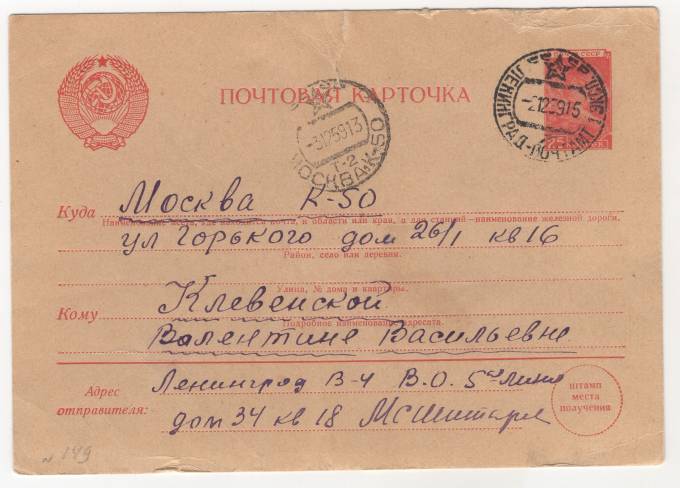 ПОЧТОВАЯ КАРТОЧКА
-3125913
Г-2
МОСКВА К-50
-2125915
ЛЕНИНГРАД-ПОЧТАМТ
Куда Москва К-50
Наименование места, где находится почта, и области или края, а для станций—наименование железной дороги
ул Горького дом 26/1 кв 16
Район, село или деревня
Улица, № дома и квартиры.
Кому Клевенской
Подробное наименование адресата
Валентине Васильевне
Адрес отправителя: Ленинград В-4 В.О. 5ая Линия
дом 34 кв 18
штамп
места
получения
№ 149